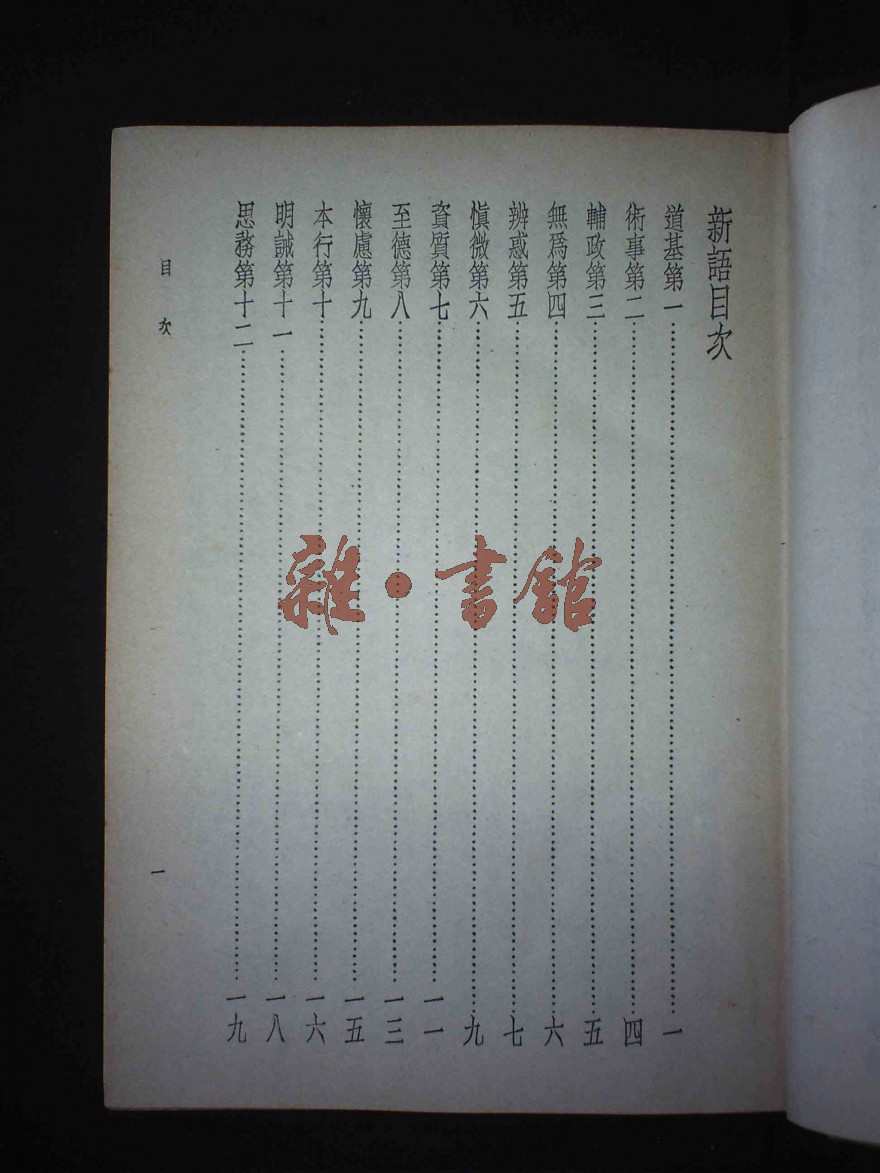 新語目次
道基第一……一
術事第二……四
輔政第三……五
無爲第四……六
辨惑第五……七
愼微第六……九
資質第七……一一
至德第八……一三
懷慮第九……一五
本行第十……一六
明誡第十一……一八
思務第十二……一九
目次
一
雜·書館